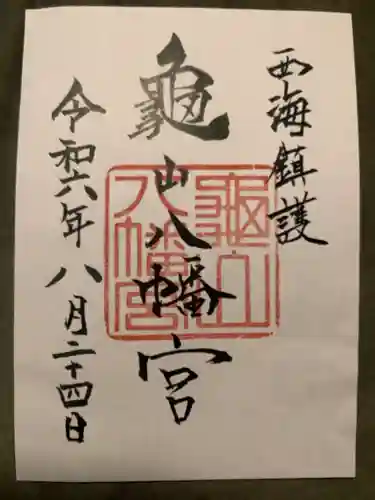 西海鎮護
龜山八幡宮
令和六年八月二十四日
龜山
八幡宮